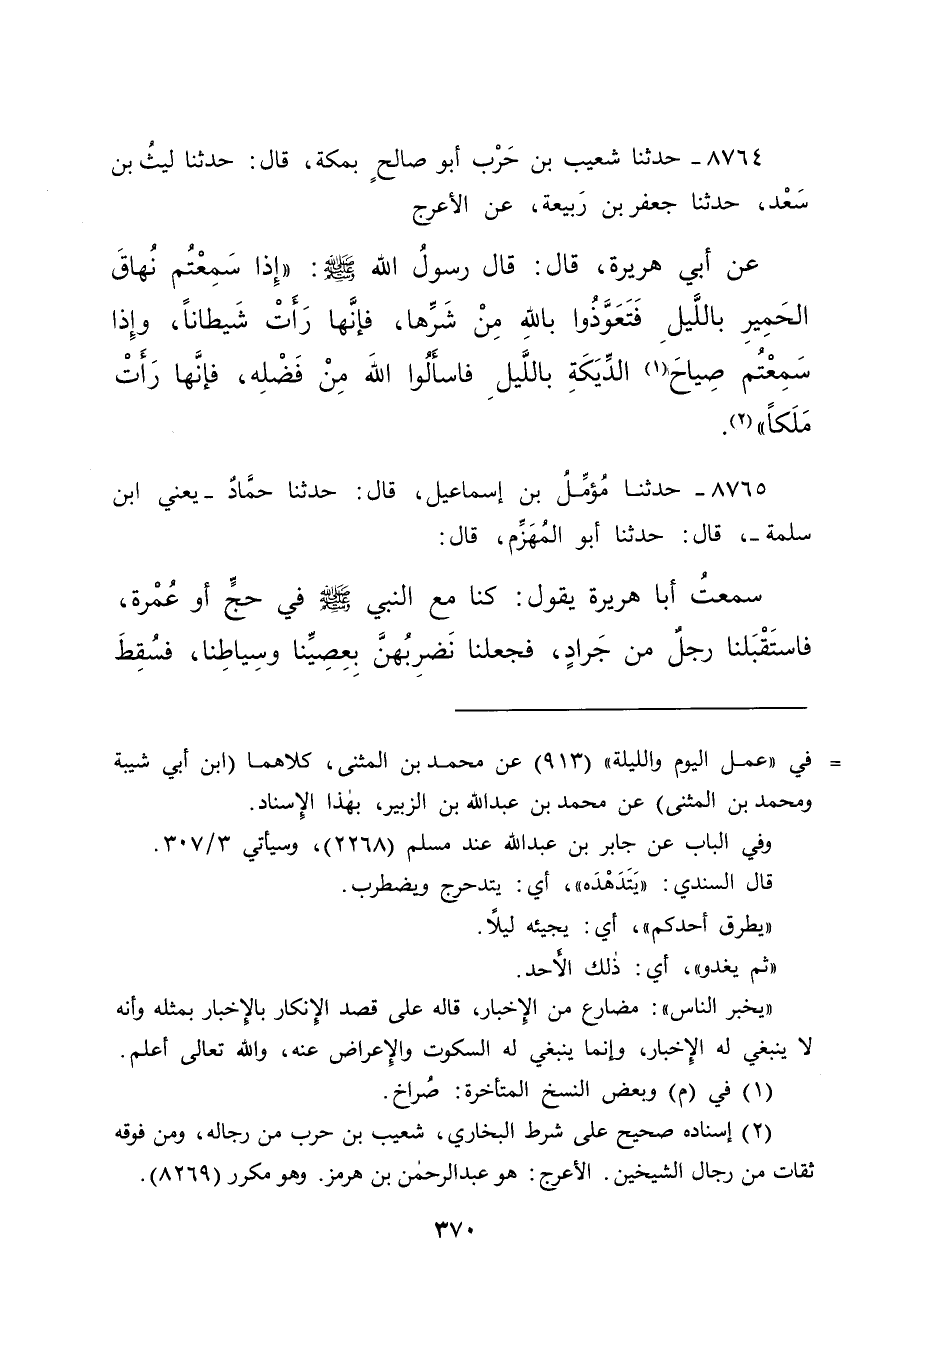 ٨٧٦٤ ـ حدثنا شعيب بن حَرْب أبو صالحٍ بمكة، قال: حدثنا ليثُ بن
سَعْد، حدثنا جعفر بن رَبيعة، عن الأعرج
عن أبي هريرة، قال: قال رسولُ الله ﷺ: «إِذا سَمِعْتُم نُهاقَ
الحَمِيرِ باللَّيلِ فَتَعَوَّذُوا باللهِ مِنْ شَرِّها، فإنَّها رَأَتْ شَيطاناً، وإِذا
سَمِعْتُم صِياحَ(١) الدِّيَكَةِ باللَّيلِ فاسأَلُوا اللهَ مِنْ فَضْلِه، فإنَّها رَأَتْ
مَلَكاً»(٢).
٨٧٦٥ ـ حدثنا مُؤمَّلُ بن إسماعيل، قال: حدثنا حمَّادٌ ـ يعني ابن
سلمة ـ، قال: حدثنا أبو المُهَزِّم، قال:
سمعتُ أبا هريرة يقول: كنا مع النبي ﷺ في حجٍّ أو عُمْرة،
فاستَقْبَلنا رجلٌ من جَرادٍ، فجعلنا نَضرِبُهنَّ بِعِصِيِّنا وسِياطِنا، فسُقِطَ
= في «عمل اليوم والليلة» (٩١٣) عن محمد بن المثنى، كلاهما (ابن أبي شيبة
ومحمد بن المثنى) عن محمد بن عبدالله بن الزبير، بهٰذا الإِسناد.
وفي الباب عن جابر بن عبدالله عند مسلم (٢٢٦٨)، وسيأتي ٣٠٧/٣.
قال السندي: «يَتَدَهْدَه»، أي: يتدحرج ويضطرب.
«يطرق أحدكم»، أي: يجيئه ليلًا.
«ثم يغدو»، أي: ذٰلك الأَحد.
«يخبر الناس»: مضارع من الإِخبار، قاله على قصد الإِنكار بالإِخبار بمثله وأنه
لا ينبغي له الإِخبار، وإنما ينبغي له السكوت والإِعراض عنه، والله تعالى أعلم.
(١) في (م) وبعض النسخ المتأخرة: صُراخ.
(٢) إسناده صحيح على شرط البخاري، شعيب بن حرب من رجاله، ومن فوقه
ثقات من رجال الشيخين. الأعرج: هو عبدالرحمٰن بن هرمز. وهو مكرر (٨٢٦٩).
٣٧٠